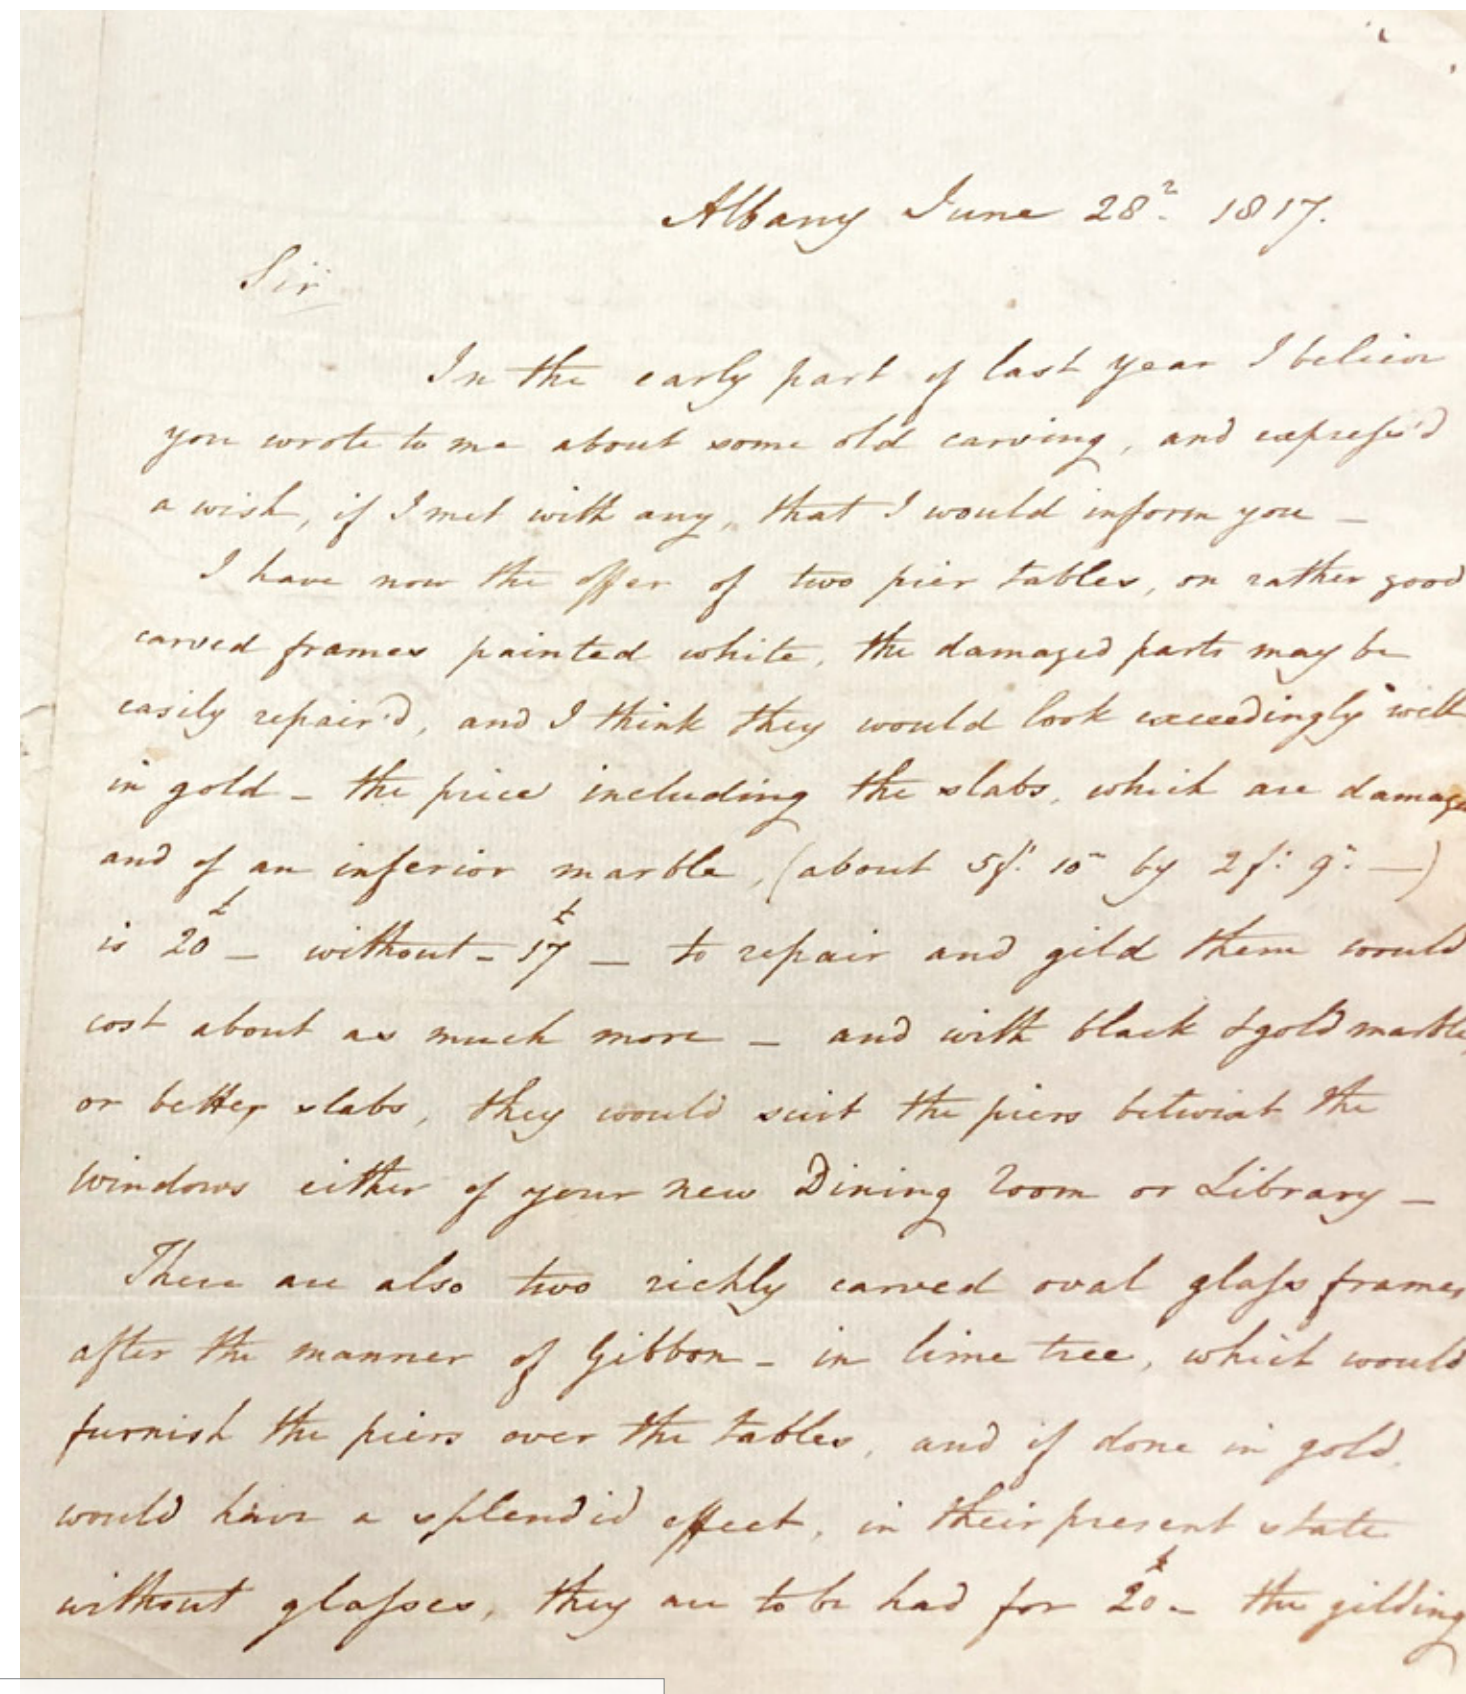 Albany June 28th. 1817.
Sir
In the early part of last year I believe
you wrote to me about some old carving, and expreſs'd
a wish, if I met with any, that I would inform you –
I have now the offer of two pier tables, on rather good
carved frames painted white, the damaged parts may be
easily repair'd, and I think they would look exceedingly well
in gold – the price including the slabs, which are damaged
and of an inferior marble, (about 5f: 10" by 2f: 9": –)
is 20£ – without – 17£ – to repair and gild them would
cost about as much more – and with black & gold marble,
or better slabs, they would suit the piers betwixt the
windows either of your new Dining Room or Library –
There are also two richly carved oval glaſs frames
after the manner of Gibbon – in lime tree, which would
furnish the piers over the tables, and if done in gold,
would have a splendid effect, in their present state
without glaſses, they are to be had for 20£ – the gilding